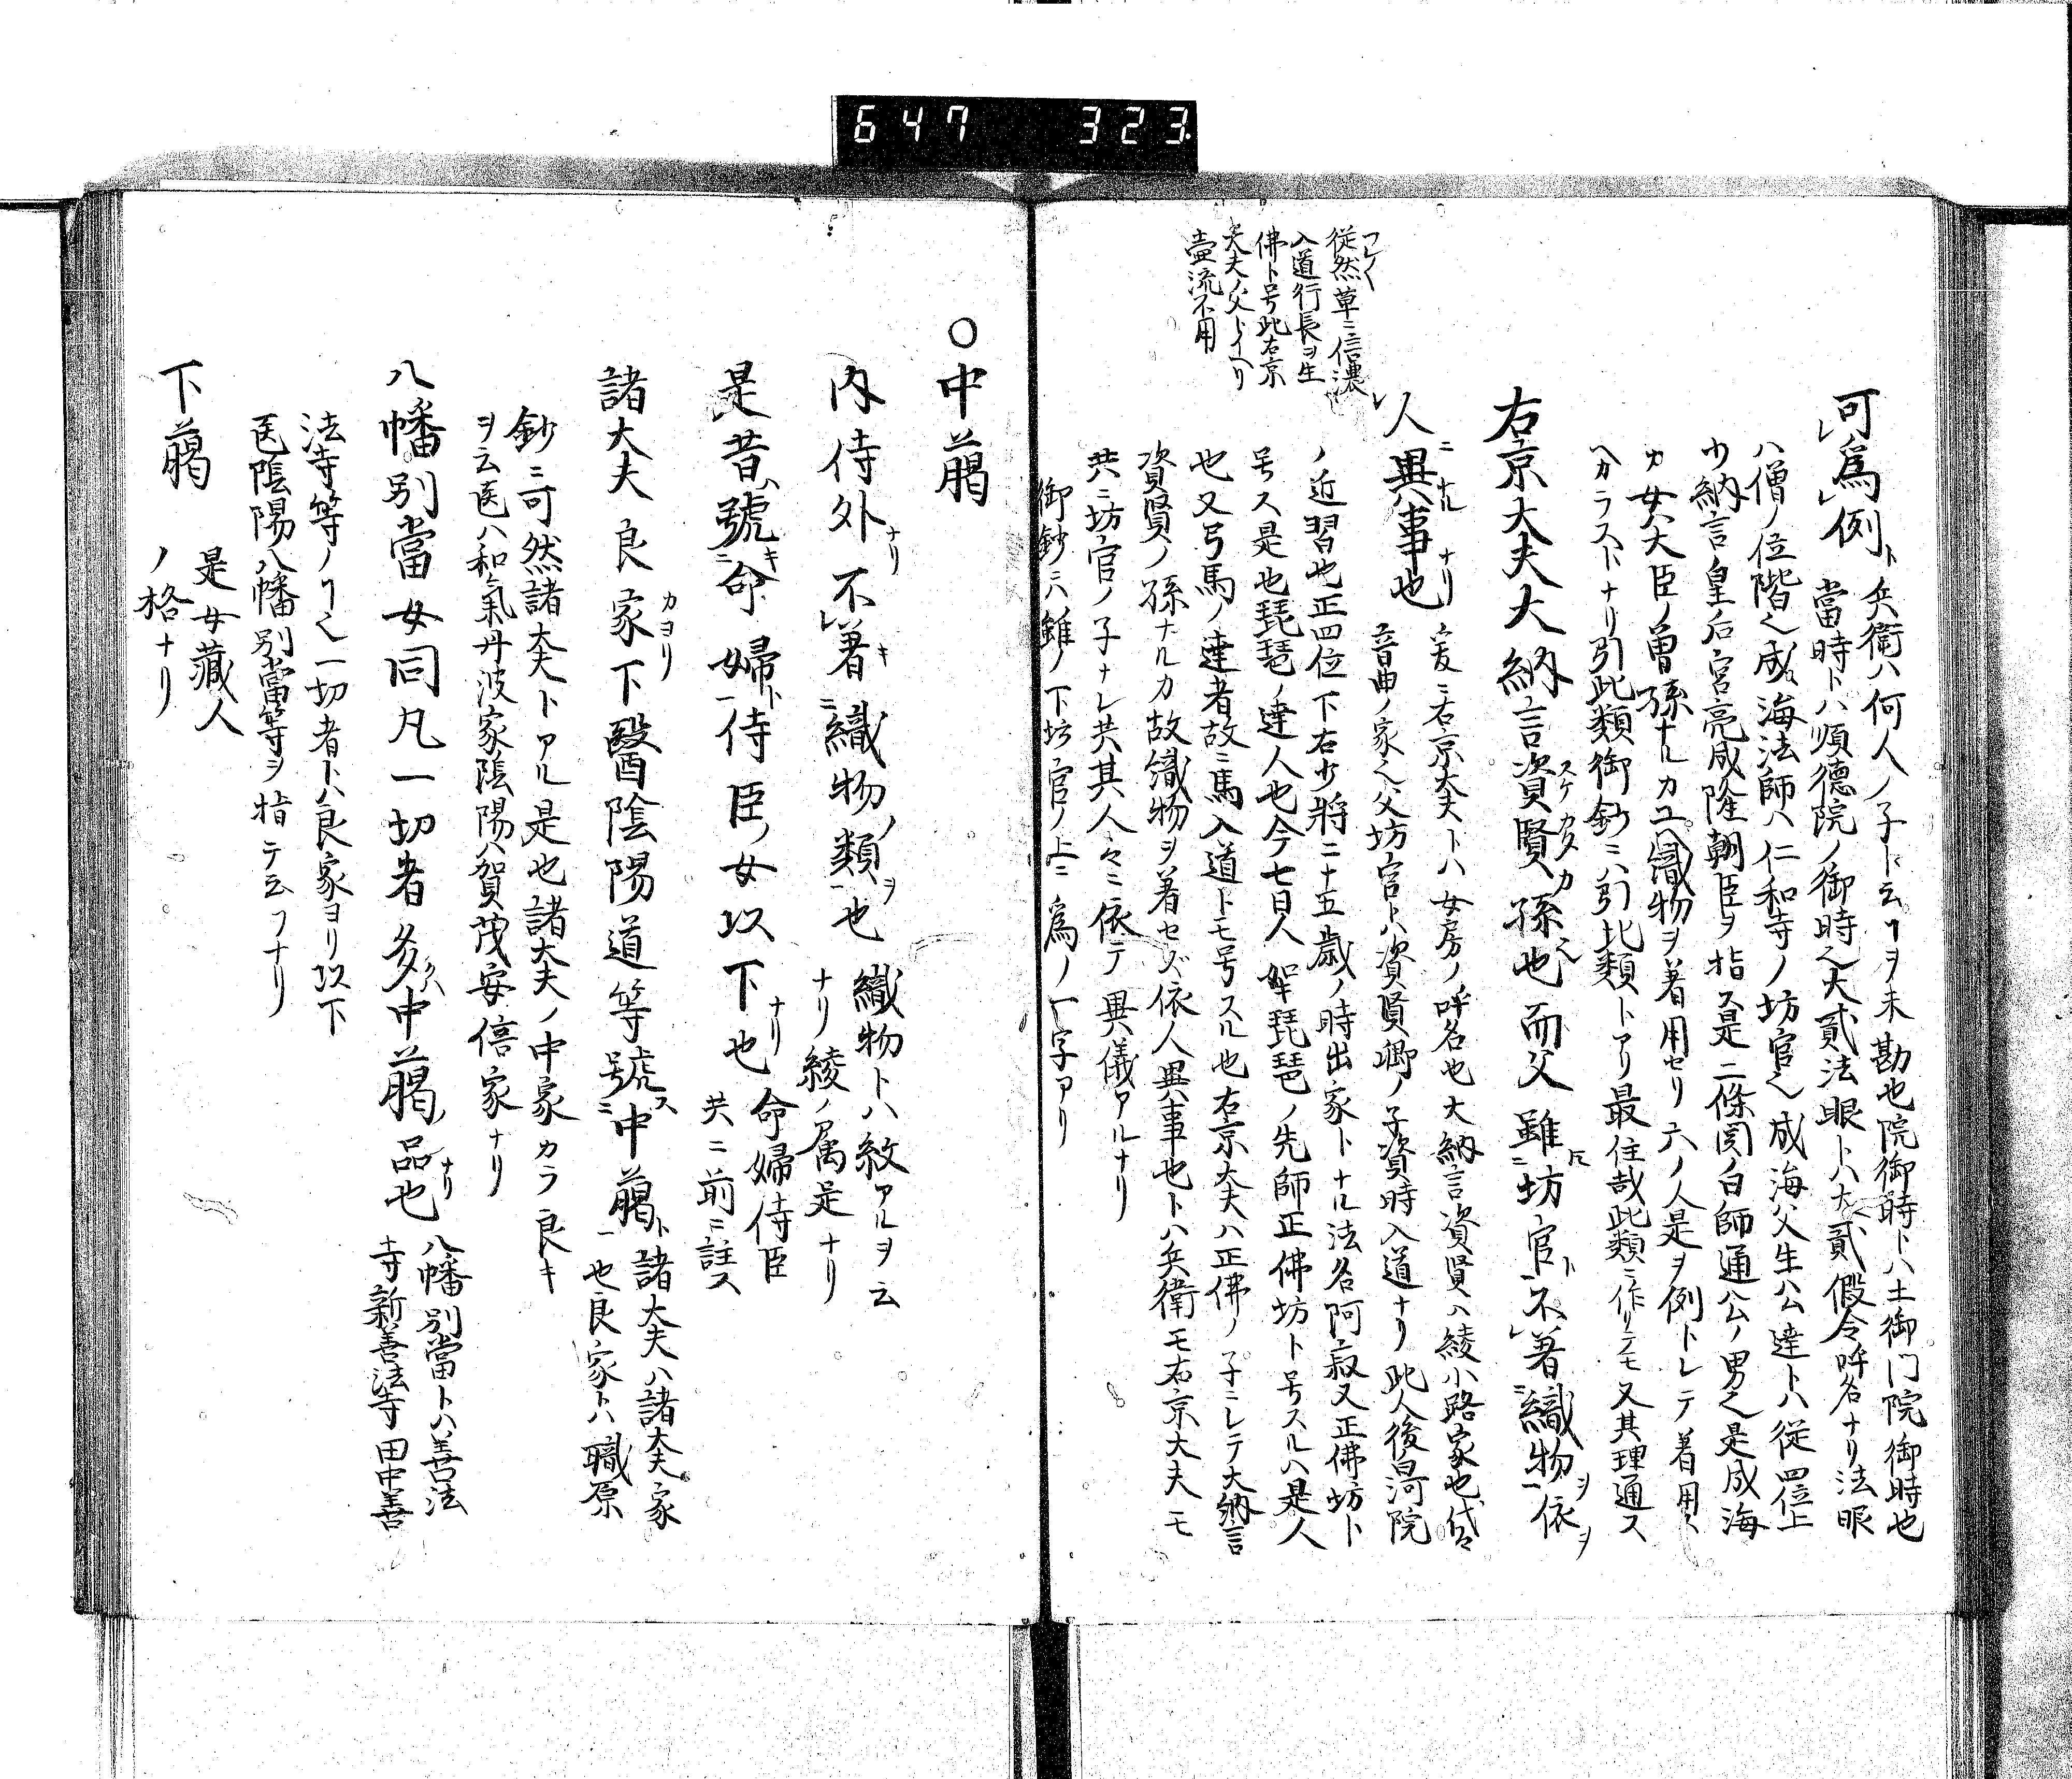 647 323
従然草ニ信濃
入道行長ヲ生
佛ト号此右京
大夫ノ父トイヘリ
壺流不用
可爲例ト兵衛ハ何人ノ子ト云フヿヲ未勘也院御時トハ土御門院御時也
當時トハ順徳院ノ御時也大貳法眼トハ大貳假令呼名ナリ法眼
ハ僧ノ位階也成海法師ハ仁和寺ノ坊官也成海父生公達トハ従四位上
少納言皇后宮亮成隆朝臣ヲ指ス是二條関白師通公ノ男也是成海
カ女大臣ノ曽孫ナルカユヘ織物ヲ著用セリ六ノ人是ヲ例トレテ著用ス
ヘカラストナリ引此類御鈔ニハ引比類トアリ最住哉此類ニ作リテモ又其理通ス
右京大夫大納言資賢スケカタカ孫也而父雖坊官ト不著織物ヲ依ヲ
人ニ異ナル事也ナリ
爰ニ右京大夫トハ女房ノ呼名也大納言資賢ハ綾小路家也代々
音曲ノ家也父坊官トハ資賢卿ノ子資時入道ナリ此人後白河院
ノ近習也正四位下右少將二十五歳ノ時出家トナル法名阿寂又正佛坊ト
号ス是也琵琶ノ達人也今七日人琵琶ノ先師正佛坊ト号スルハ是人
也又弓馬ノ達者故ニ馬入道トモ号スル也右京大夫ハ正佛ノ子ニレテ大納言
資賢ノ孫ナルカ故織物ヲ著セズ依人異事也トハ兵衛モ右京大夫モ
共ニ坊官ノ子ナレ共其人々ニ依テ異儀アルナリ
御鈔ニハ雖ノ下坊官ノ上ニ爲ノ一字アリ
○中﨟
内侍外ナリ不著キ織物ノ類ヲ也
織物トハ紋アルヲ云
ナリ綾ノ属是ナリ
是昔ハ號キ命婦ト侍臣ノ女以下也ナリ
命婦侍臣
共ニ前ニ註ス
諸大夫良家カヨリ下醫陰陽道等号ス中﨟ト
諸大夫ハ諸大夫家
也良家トハ職原
鈔ニ可然諸大夫トアル是也諸大夫ノ中家カラ良キ
ヲ云医ハ和氣丹波家陰陽ハ賀茂安倍家ナリ
八幡別當女同凡一切者多クハ中﨟ノ品也ナリ
八幡別當トハ善法
寺新善法寺田中善
法寺等ノヿ也一切者トハ良家ヨリ以下
医陰陽八幡別當等ヲ指テ云フナリ
下﨟
是女藏人
ノ格ナリ